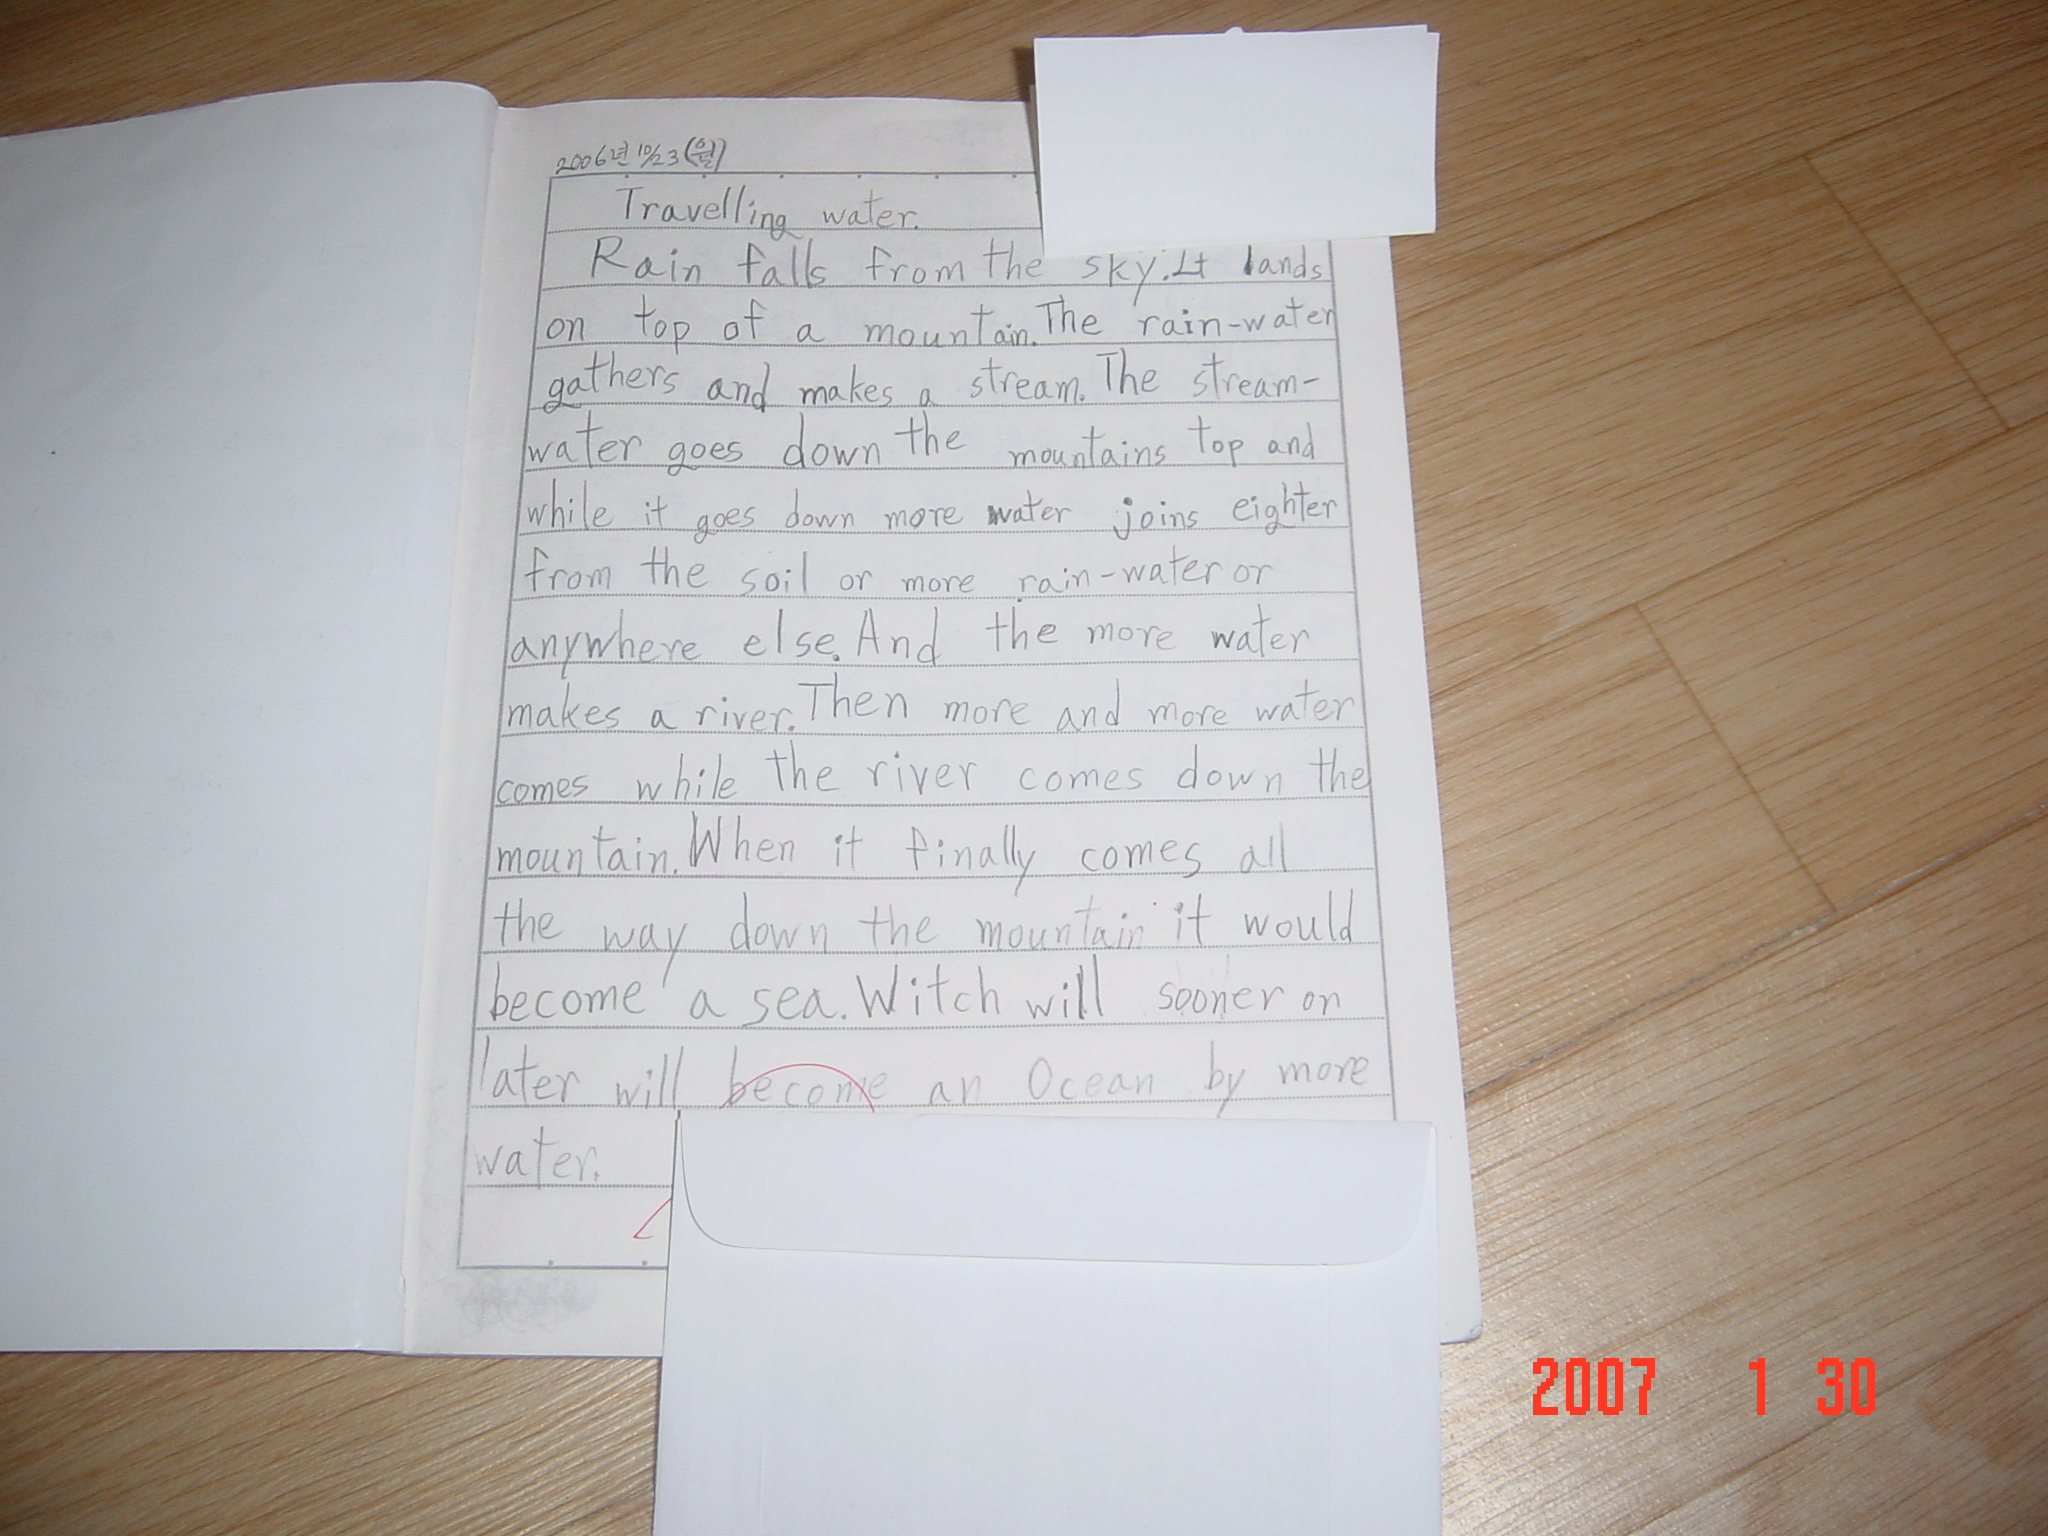 2006년 10/23(월)
Travelling water.
Rain falls from the sky. It lands
on top of a mountain. The rain-water
gathers and makes a stream. The stream-
water goes down the mountains top and
while it goes down more water joins eighter
from the soil or more rain-water or
anywhere else. And the more water
makes a river. Then more and more water
comes while the river comes down the
mountain. When it finally comes all
the way down the mountain it would
become a sea. Witch will sooner or
later will become an Ocean by more
water.
2007 1 30